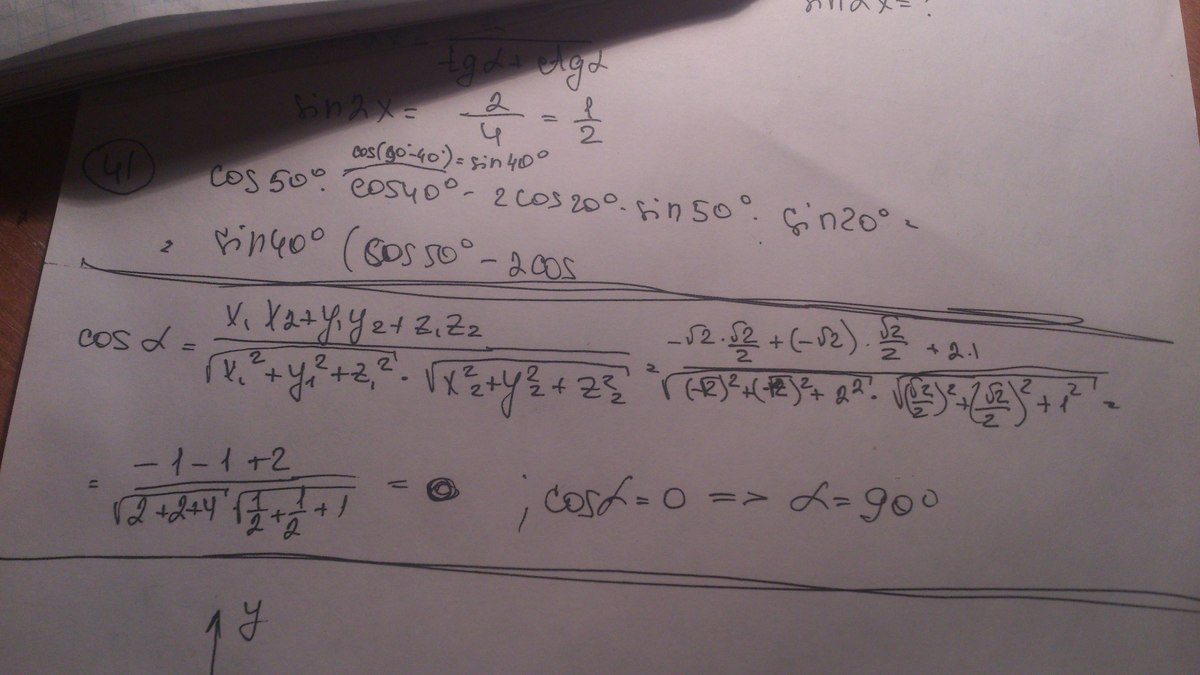 sin2x = ?
tgα + ctgα
sin2x = 2/4 = 1/2
41
cos(90°-40°) = sin40°
cos50° · cos40° - 2cos20° · sin50° · sin20° =
= sin40° (cos50° - 2cos
cos α = (x₁x₂+y₁y₂+z₁z₂)/(√(x₁²+y₁²+z₁²) · √(x₂²+y₂²+z₂²)) = (-√2·√2/2 + (-√2)·√2/2 + 2·1)/(√((-√2)²+(-√2)²+2²) · √((√2/2)²+(√2/2)²+1²)) =
= (-1-1+2)/(√(2+2+4) √(1/2+1/2+1)) = 0 ; cosα = 0 => α = 90°
y